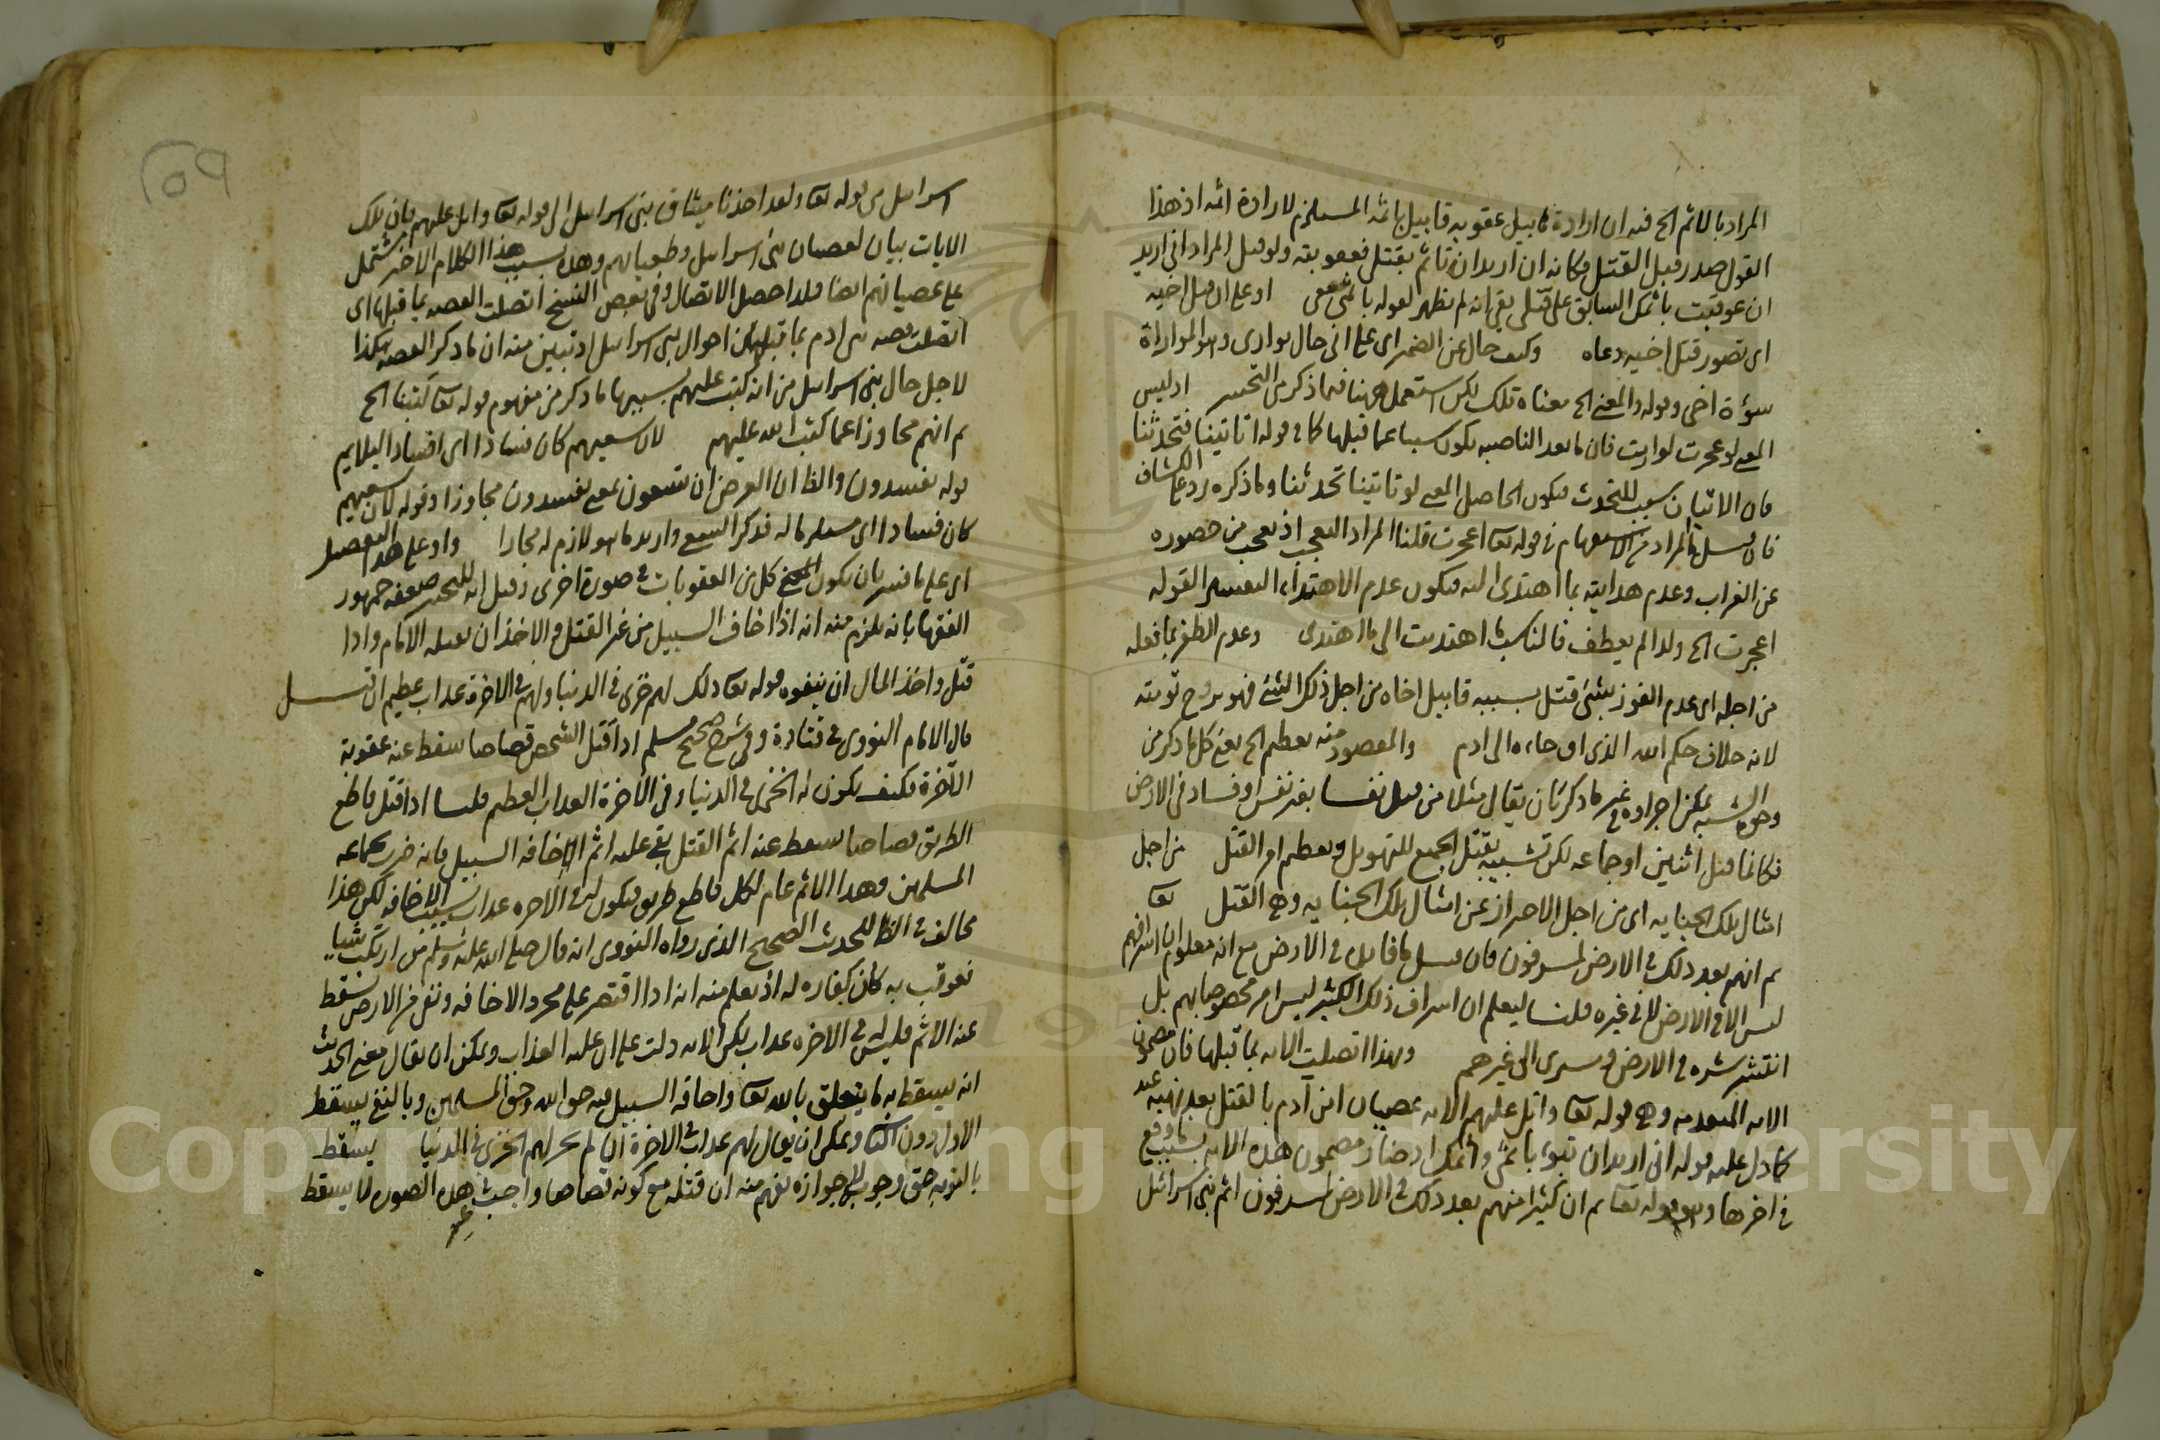 المراد بالاثم الخ فيه ان ارادة هابيل عقوبة قابيل باثمه المستلزم لارادة اثمه اذ هذا
القول صدر قبل القتل فكانه ان اريد ان تاثم بقتلي فعوبته ولو قيل المراد اني اريد
ان عوقبت باثمك السابق على قتلي بقي انه لم يظهر لقوله باثمي معنى او على ان قتل اخيه
اي تصور قتل اخيه دعاه وكيف حال عن الضمير اي على اي حال يواري وهو المواراة
سوءة اخي وقوله والمعنى الخ معناه تلك لكن استعمل ههنا فيما ذكر من التحسر اذ ليس
المعنى لو عجزت لواريت فان ما بعد الناصبة يكون سببا عما قبلها كما في قوله اتاتينا فتحدثنا
فان الاتيان سبب للتحدث فيكون الحاصل المعنى لو تاتينا تحدثنا وما ذكره رد على الكشاف
فان قيل ما المراد من الاستفهام في قوله تعا اعجزت قلنا المراد التعجب اذ تعجب من قصوره
عن الغراب وعدم هدايته بما اهتدى اليه فيكون عدم الاهتداء التفسير لقوله
اعجزت الخ ولذا لم يعطف فالمناسب ما اهتديت الى ما اهتدى وعدم الظفر بما فعله
من اجله اي عدم الفوز بشيء قتل بسببه قابيل اخاه من اجل ذلك الشيء فهو يروج توبته
لانه خلاف حكم الله الذي اوحاه الى ادم والمقصود منه تعظيم الخ يعني كل ما ذكر من
وجوه الشبه يمكن اجراؤه في غير ما ذكر كان يقال مثلا من قتل نفسا بغير نفس او فساد في الارض
فكانما قتل اثنين او جماعة لكن تشبيه بقتل الجميع للتهويل وتعظيم امر القتل من اجل
امثال تلك الجناية اي من اجل الاحتراز عن امثال تلك الجناية وهي القتل تعا
ثم انهم بعد ذلك في الارض لمسرفون فان قيل ما فايدة في الارض مع انه معلوم ان اسرافهم
ليس الا في الارض لا في غيره قلنا ليعلم ان اسراف ذلك الكثير ليس امر مخصوصا بهم بل
انتشر شره في الارض وسرى الى غيرهم ولهذا اتصلت الاية بما قبلها فان مضمون
الاية المتقدمة وهي قوله تعا واتل عليهم الاية عصيان ابن آدم بالقتل بعد نهيه عنه
كما دل عليه قوله اني اريد ان تبوء باثمي واثمك ايضا ومضمون هذه الاية بسبب ما وقع
في اخرها وهو قوله تعا ثم ان كثيرا منهم بعد ذلك في الارض لمسرفون اثم بني اسرائيل
اسرائيل من قوله تعا ولقد اخذنا ميثاق بني اسرائيل الى قوله تعا واتل عليهم فان تلك
الايات بيان لعصيان بني اسرائيل وطغيانهم وهذه بسبب هذا الكلام الاخير مشتمل
على عصيانهم ايضا فلذا حصل الاتصال وفي بعض النسخ اتصلت القصة بما قبلها اي
اتصلت قصة بني ادم بما قبلها من احوال بني اسرائيل اذ تبين منه ان ما ذكر القصة هكذا
لاجل حال بني اسرائيل من انه كتب عليهم بسببها ما ذكر من مفهوم قوله تعا كتبنا الخ
ثم انهم تجاوزا عما كتب الله عليهم لان سعيهم كان فسادا اي افسادا ليلايم
قوله يفسدون والظا ان الغرض ان تسعون بمعنى يفسدون مجازا وقوله لان سعيهم
كان فسادا اي مستلزما له فذكر السعي واريد ما هو لازم له مجازا واو على هذا للتفصيل
اي على ما فسر بان يكون المعنى كل من العقوبات في صورة اخرى وقيل انه للتخيير ضعفه جمهور
الفقها بانه يلزم منه انه اذا خاف السبيل من غير القتل والاخذ ان يقتله الامام واذا
قتل واخذ المال ان ينفوه قوله تعا ذلك لهم خزي في الدنيا ولهم في الاخرة عذاب عظيم ان قيل
قال الامام النووي في فتاواه وفي شرح صحيح مسلم اذا قتل الشخص قصاصا سقط عنه عقوبة
الآخرة فكيف يكون له الخزي في الدنيا وفي الآخرة العذاب العظيم قلنا اذا قتل قاطع
الطريق قصاصا سقط عنه اثم القتل بقي عليه اثم الاخافه السبيل فانه ضرب بجماعة
المسلمين وهذا الاثم عام لكل قاطع طريق فيكون له في الاخرة عذاب بسبب الاخافه لكن هذا
مخالف في الظا للحديث الصحيح الذي رواه النووي انه قال صلى الله عليه وسلم من ارتكب شيا
فعوقب به كان كفارة له اذ يعلم منه انه اذا اقتصر على مجرد الاخافه ونفي من الارض سقط
عنه الاثم فليس له في الاخرة عذاب لكن الاية دلت على ان عليه العذاب ويمكن ان يقال معنى الحديث
انه يسقط به ما يتعلق بالله تعا واخافة السبيل فيه حق الله وحق المسلمين وبالنفي يسقط
الاول دون الثا ويمكن ان يقال لهم عذاب في الاخرة ان لم يحر لهم الخزي في الدنيا يسقط
بالتوبة حق وجوبه لا جوازه يفهم منه ان قتله مع كونه قصاصا واجب في هذه الصورة لا يسقط
عنه
Copyright © King Saud University